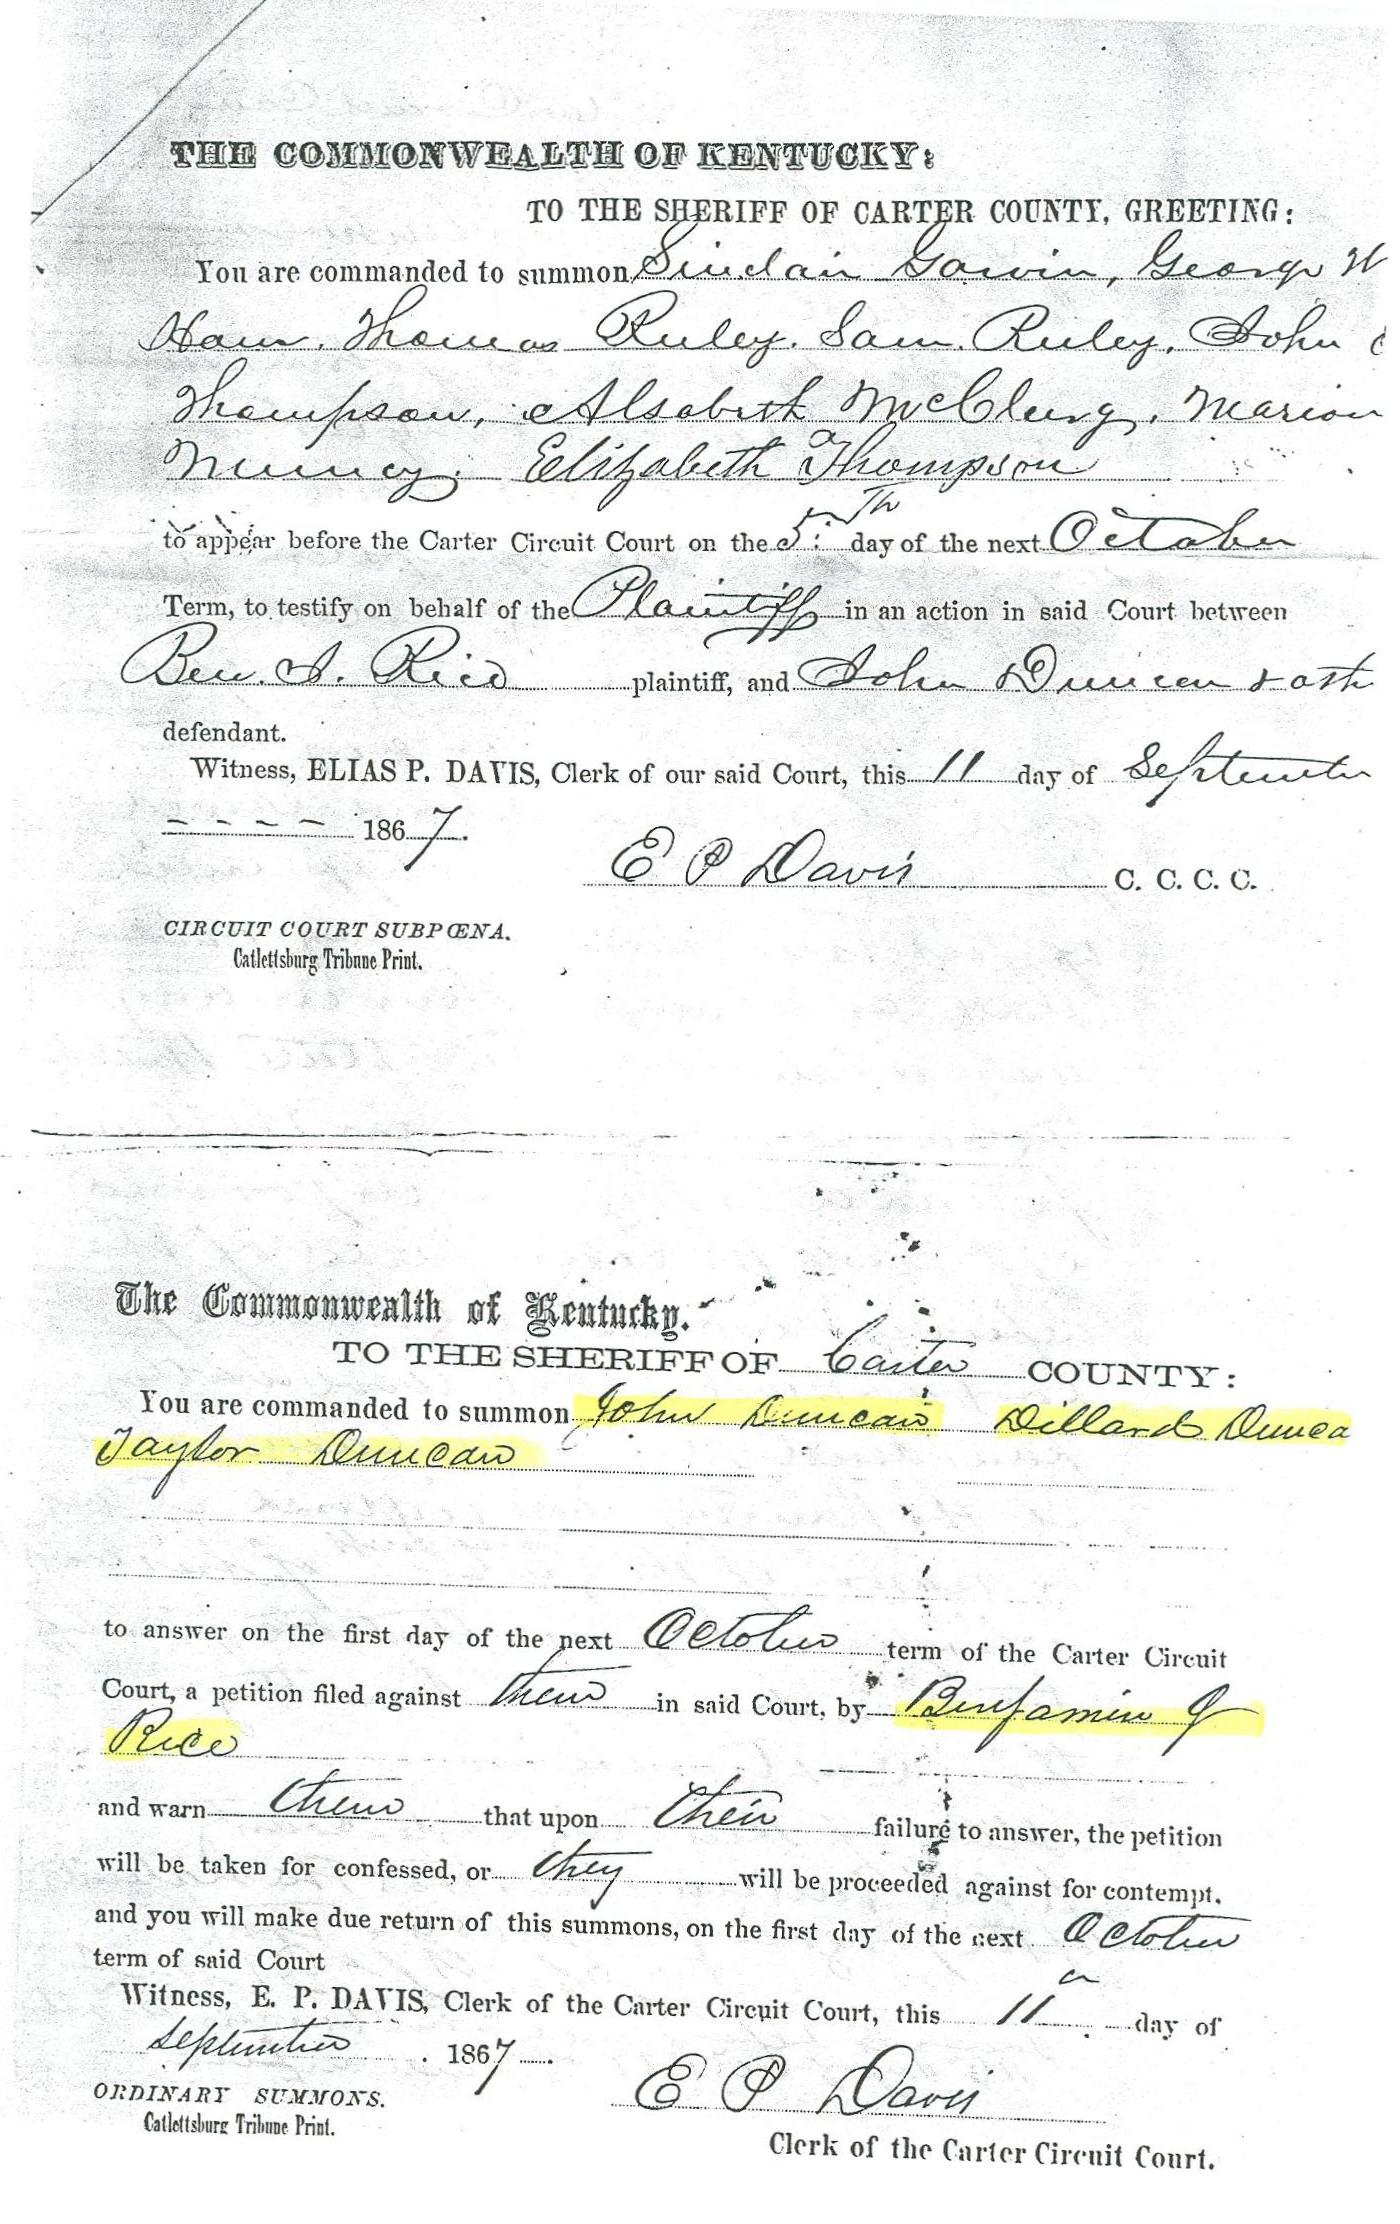 THE COMMONWEALTH OF KENTUCKY:
TO THE SHERIFF OF CARTER COUNTY, GREETING:
You are commanded to summon Sinclair Garvin, George W
Ham, Thomas Ruley, Sam. Ruley, John C
Thompson, Alsabeth McClurg, Marion
Muncy. Elizabeth Thompson
to appear before the Carter Circuit Court on the 5th day of the next October
Term, to testify on behalf of the Plaintiff in an action in said Court between
Ben. J. Rice plaintiff, and John Duncan & oth
defendant.
Witness, ELIAS P. DAVIS, Clerk of our said Court, this 11 day of September
---- 1867.
E P Davis C. C. C. C.
CIRCUIT COURT SUBPŒNA.
Catlettsburg Tribune Print.
The Commonwealth of Kentucky.
TO THE SHERIFF OF Carter COUNTY:
You are commanded to summon John Duncan Dillard Dunca
Taylor Duncan
to answer on the first day of the next October term of the Carter Circuit
Court, a petition filed against them in said Court, by Benjamin J
Rice
and warn them that upon their failure to answer, the petition
will be taken for confessed, or they will be proceeded against for contempt.
and you will make due return of this summons, on the first day of the next October
term of said Court
Witness, E. P. DAVIS, Clerk of the Carter Circuit Court, this 11 day of
September . 1867.
E P Davis
ORDINARY SUMMONS.
Catlettsburg Tribune Print.
Clerk of the Carter Circuit Court.